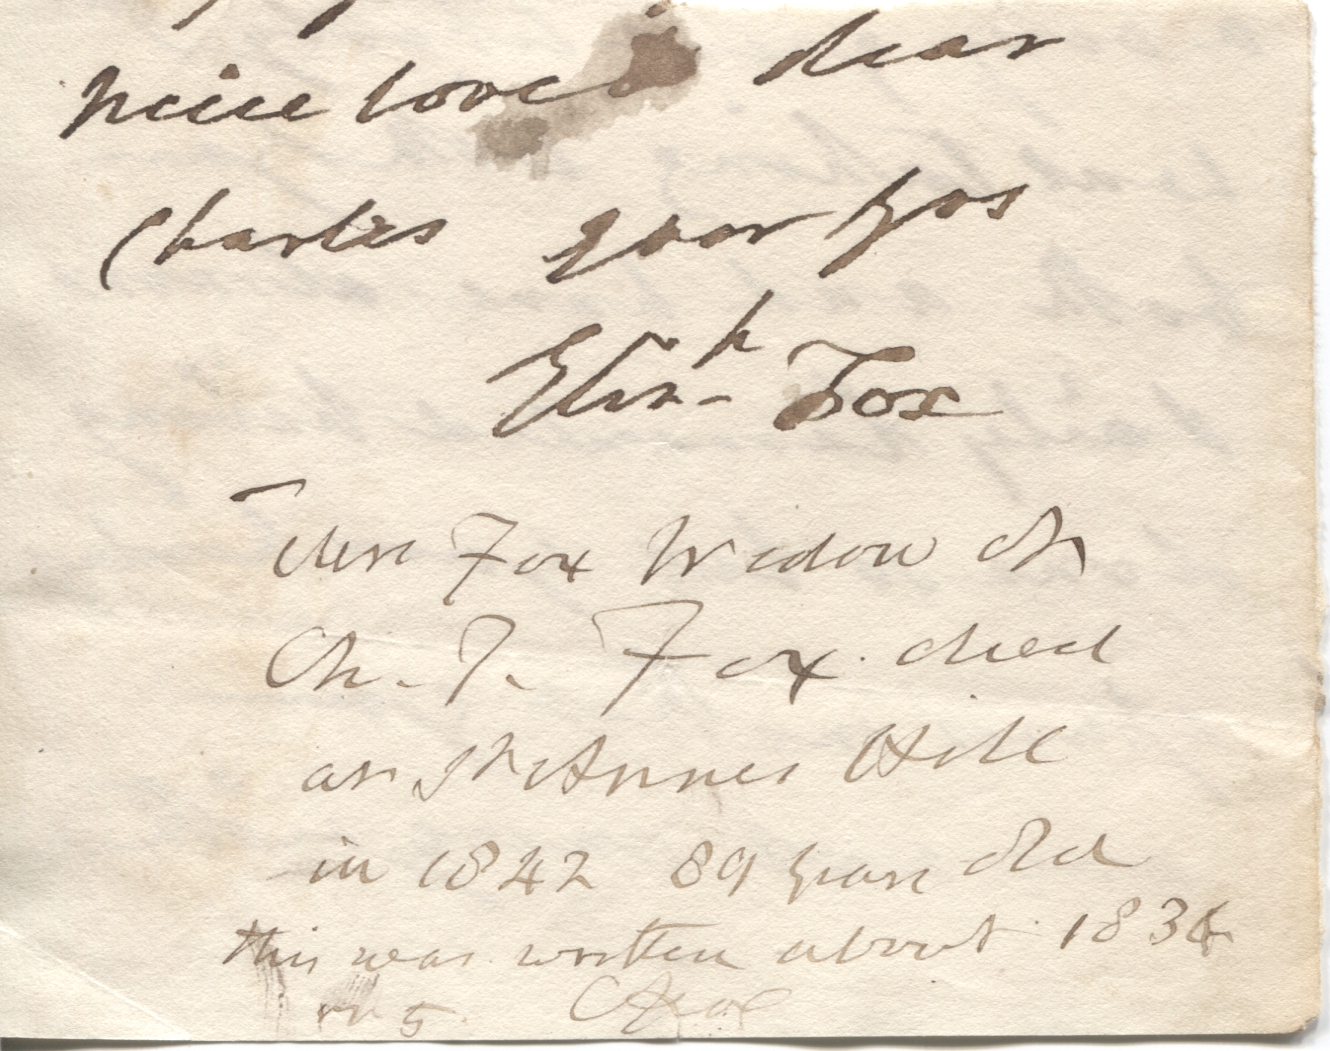 niece love's dear
Charles your frds
Elizh Fox
Mrs Fox Widow of
Ch. J. Fox. died
at St Annes Hill
in 1842 89 years old
this was written about 1834
or 5 C Fox